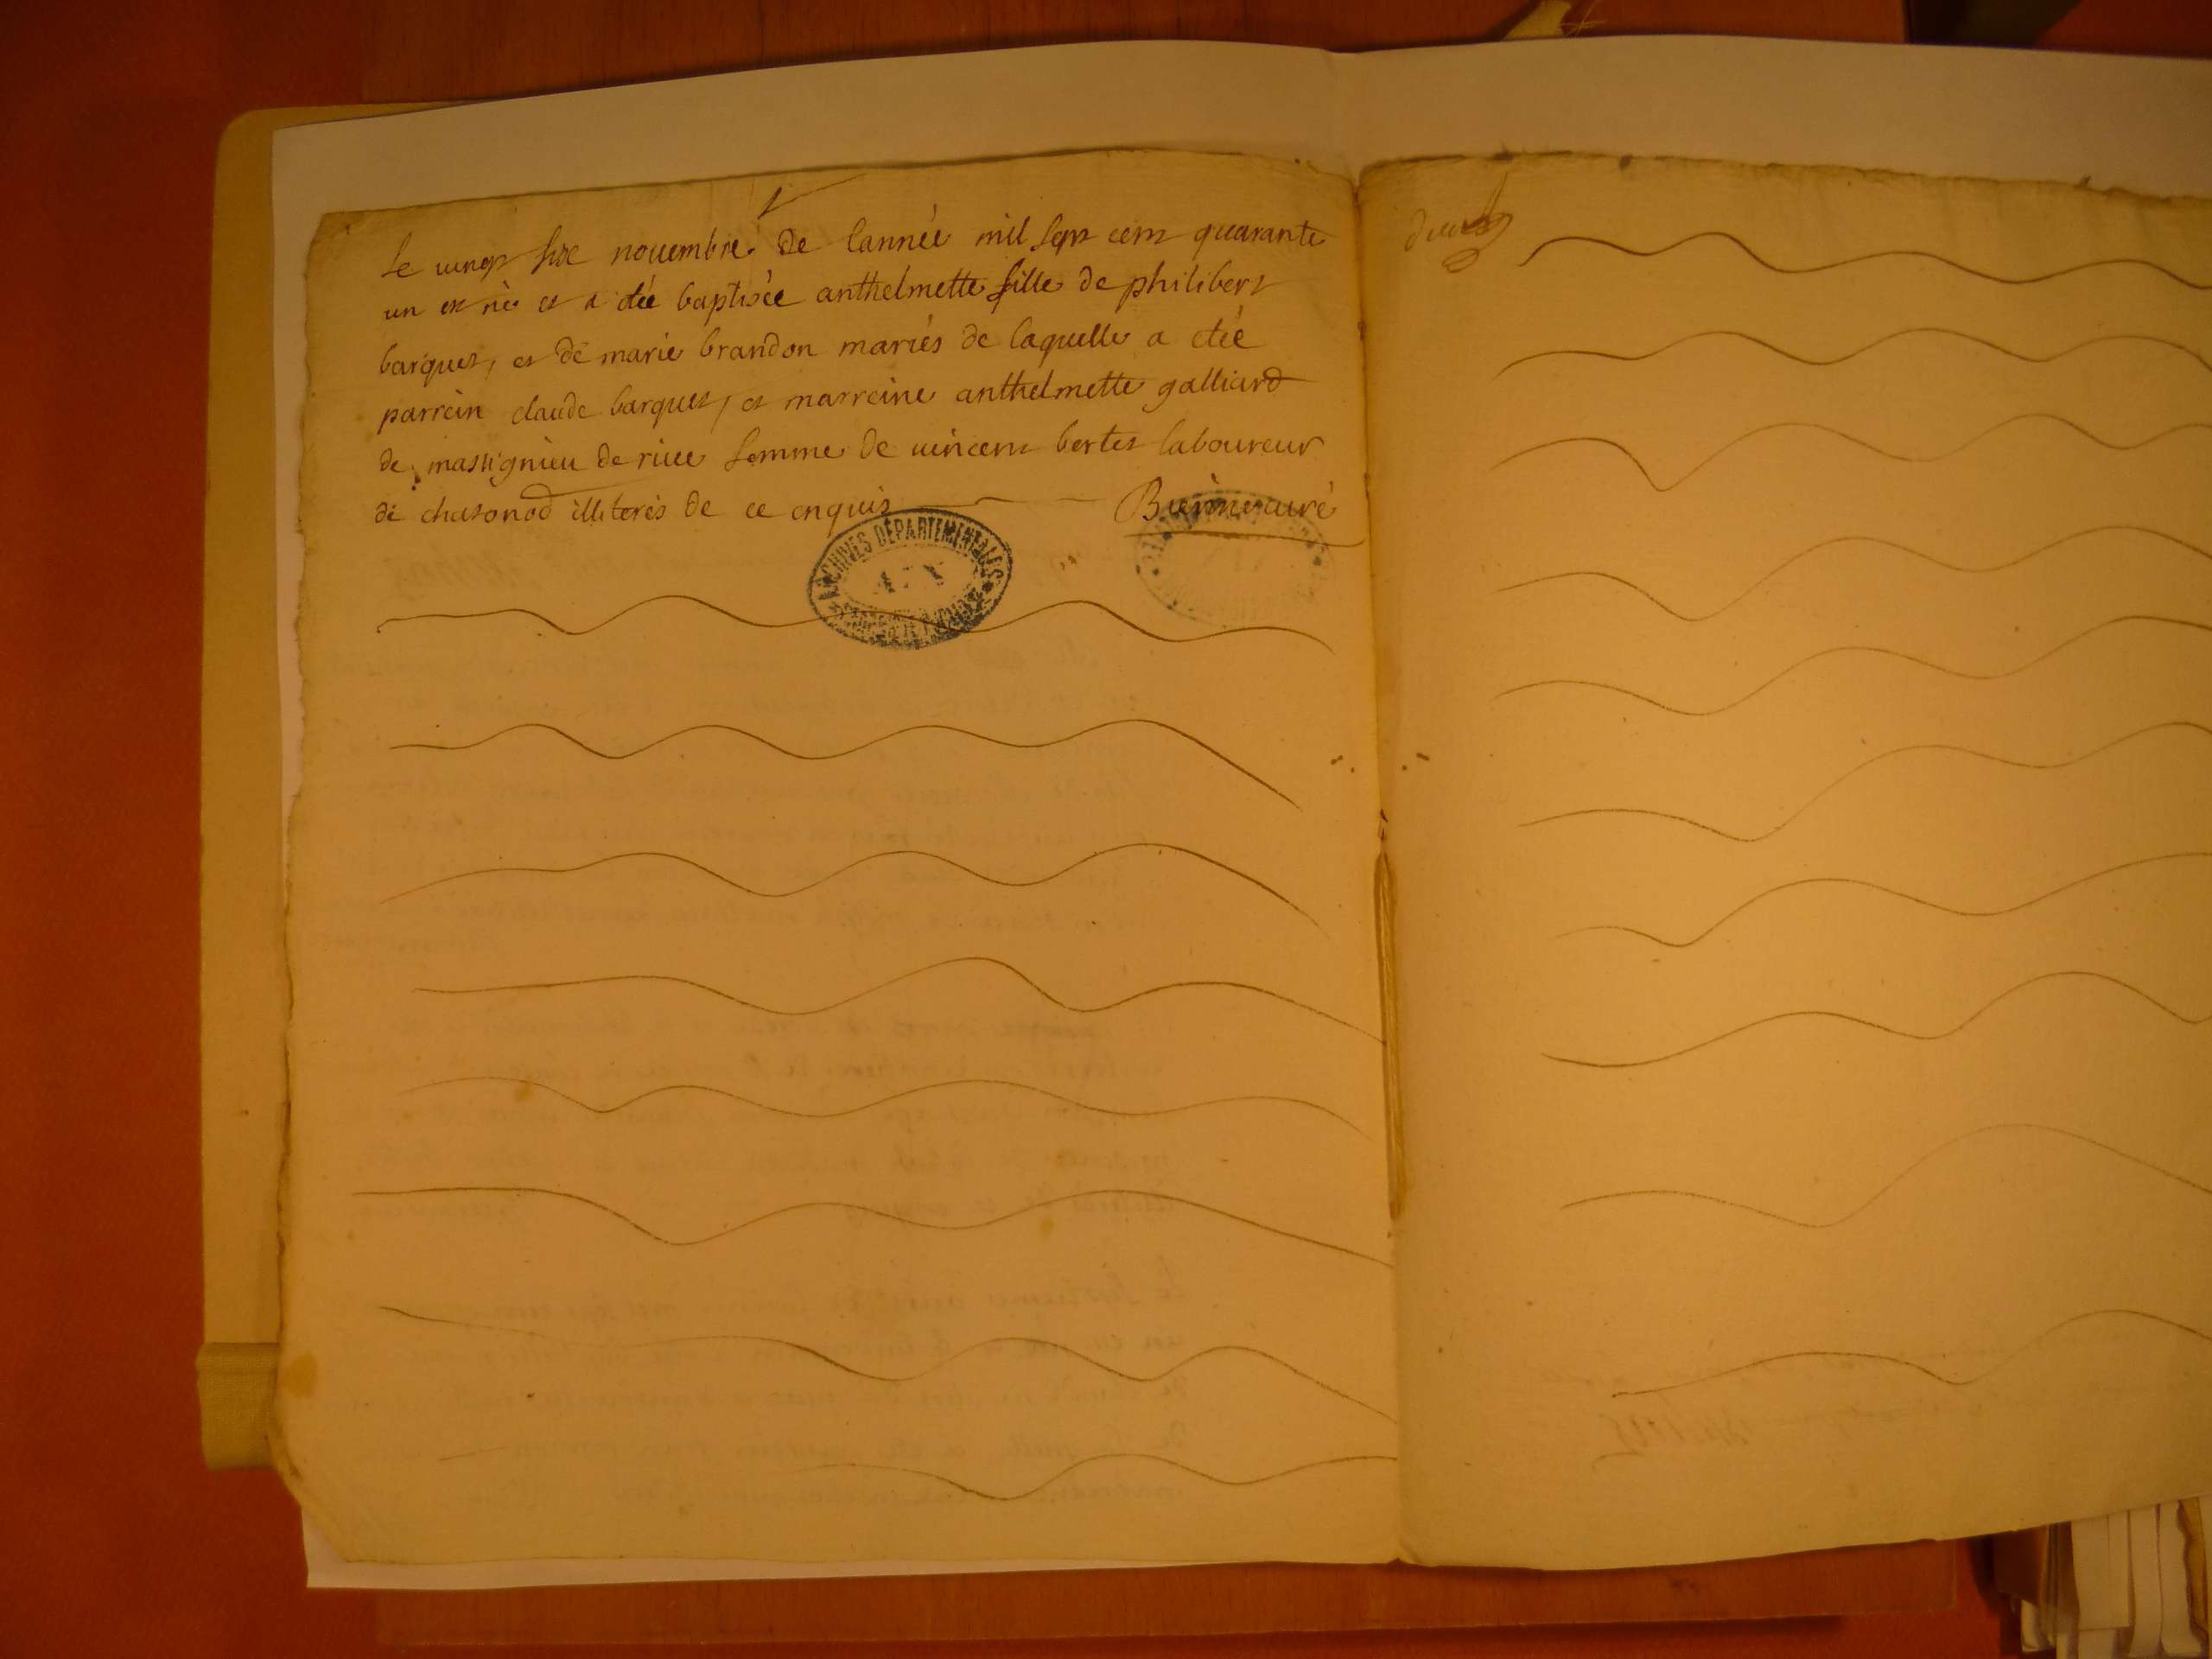 Le vingt six novembre de lannée mil sept cent quarante
un est nè et a étée baptisée anthelmette fille de philibert
barquet, et de marie brandon mariés de laquelle a étée
parrein claude barquet, et marreine anthelmette galliard
de massignieu de rive femme de vincent bertet laboureur
de chasonod illiterés de ce enquis
curé
ARCHIVES DÉPARTEMENTALES
AIN